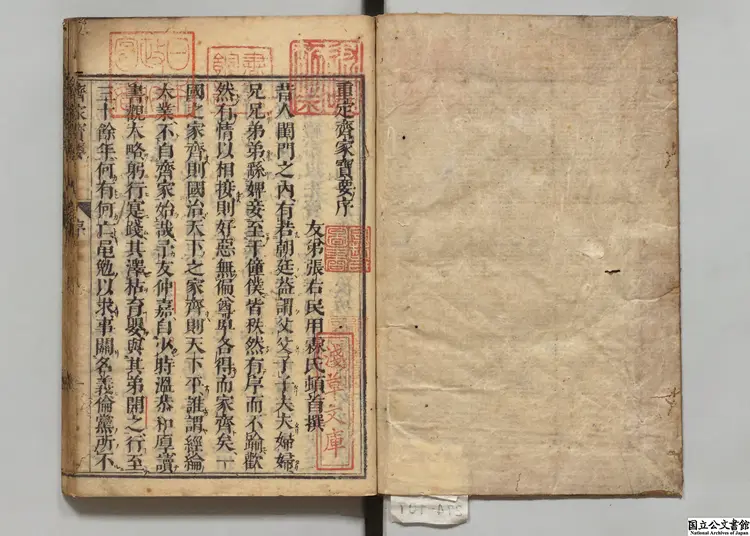 重定齊家寶要序
友弟張右民用霖氏頓首撰
昔人閨門之內有若朝廷葢謂父父子子夫夫婦婦
兄兄弟弟繇婢妾至于僮僕皆秩然有序而不踰歡
然有情以相接則好惡無偏尊卑各得而家齊矣一
國之家齊則國治天下之家齊則天下平誰謂經綸
大業不自齊家始哉予友仲嘉自少時溫恭和厚讀
書觀大略躬行寔踐其澤枯育嬰與其弟開之行至
三十餘年何有何亡黽勉以求事關名義倫黨所不
齊家寶要
序
淺草文庫
国立公文書館
National Archives of Japan